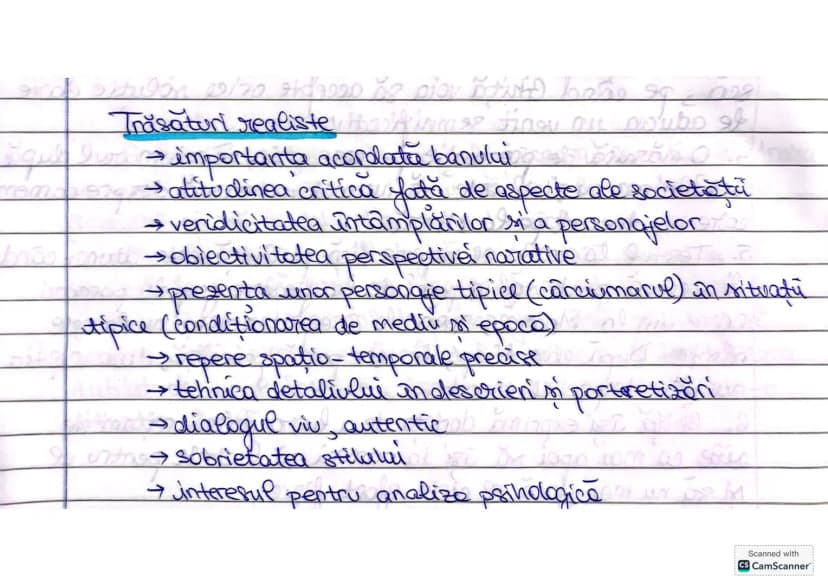 Trăsături realiste
→ importanța acordată banului
→ atitudinea critică față de aspecte ale societății
→ veridicitatea întâmplărilor și a personajelor
→ obiectivitatea perspectivei narative
→ prezența unor personaje tipice (cârciumarul) în situații
tipice (condiționarea de mediu și epocă)
→ repere spațio-temporale precise
→ tehnica detaliului în descrieri și portretizări
→ dialogul viu, autentic
→ sobrietatea stilului
→ interesul pentru analiza psihologică
Scanned with
CS CamScanner